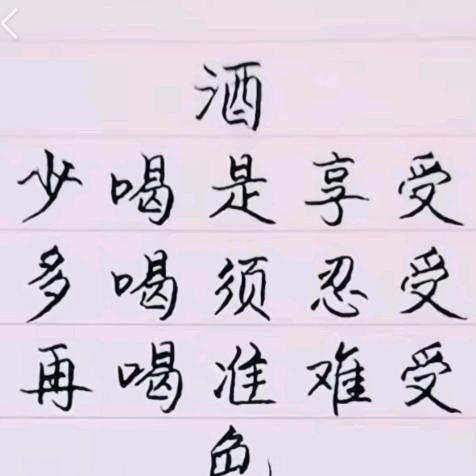 酒
少喝是享受
多喝须忍受
再喝准难受
色